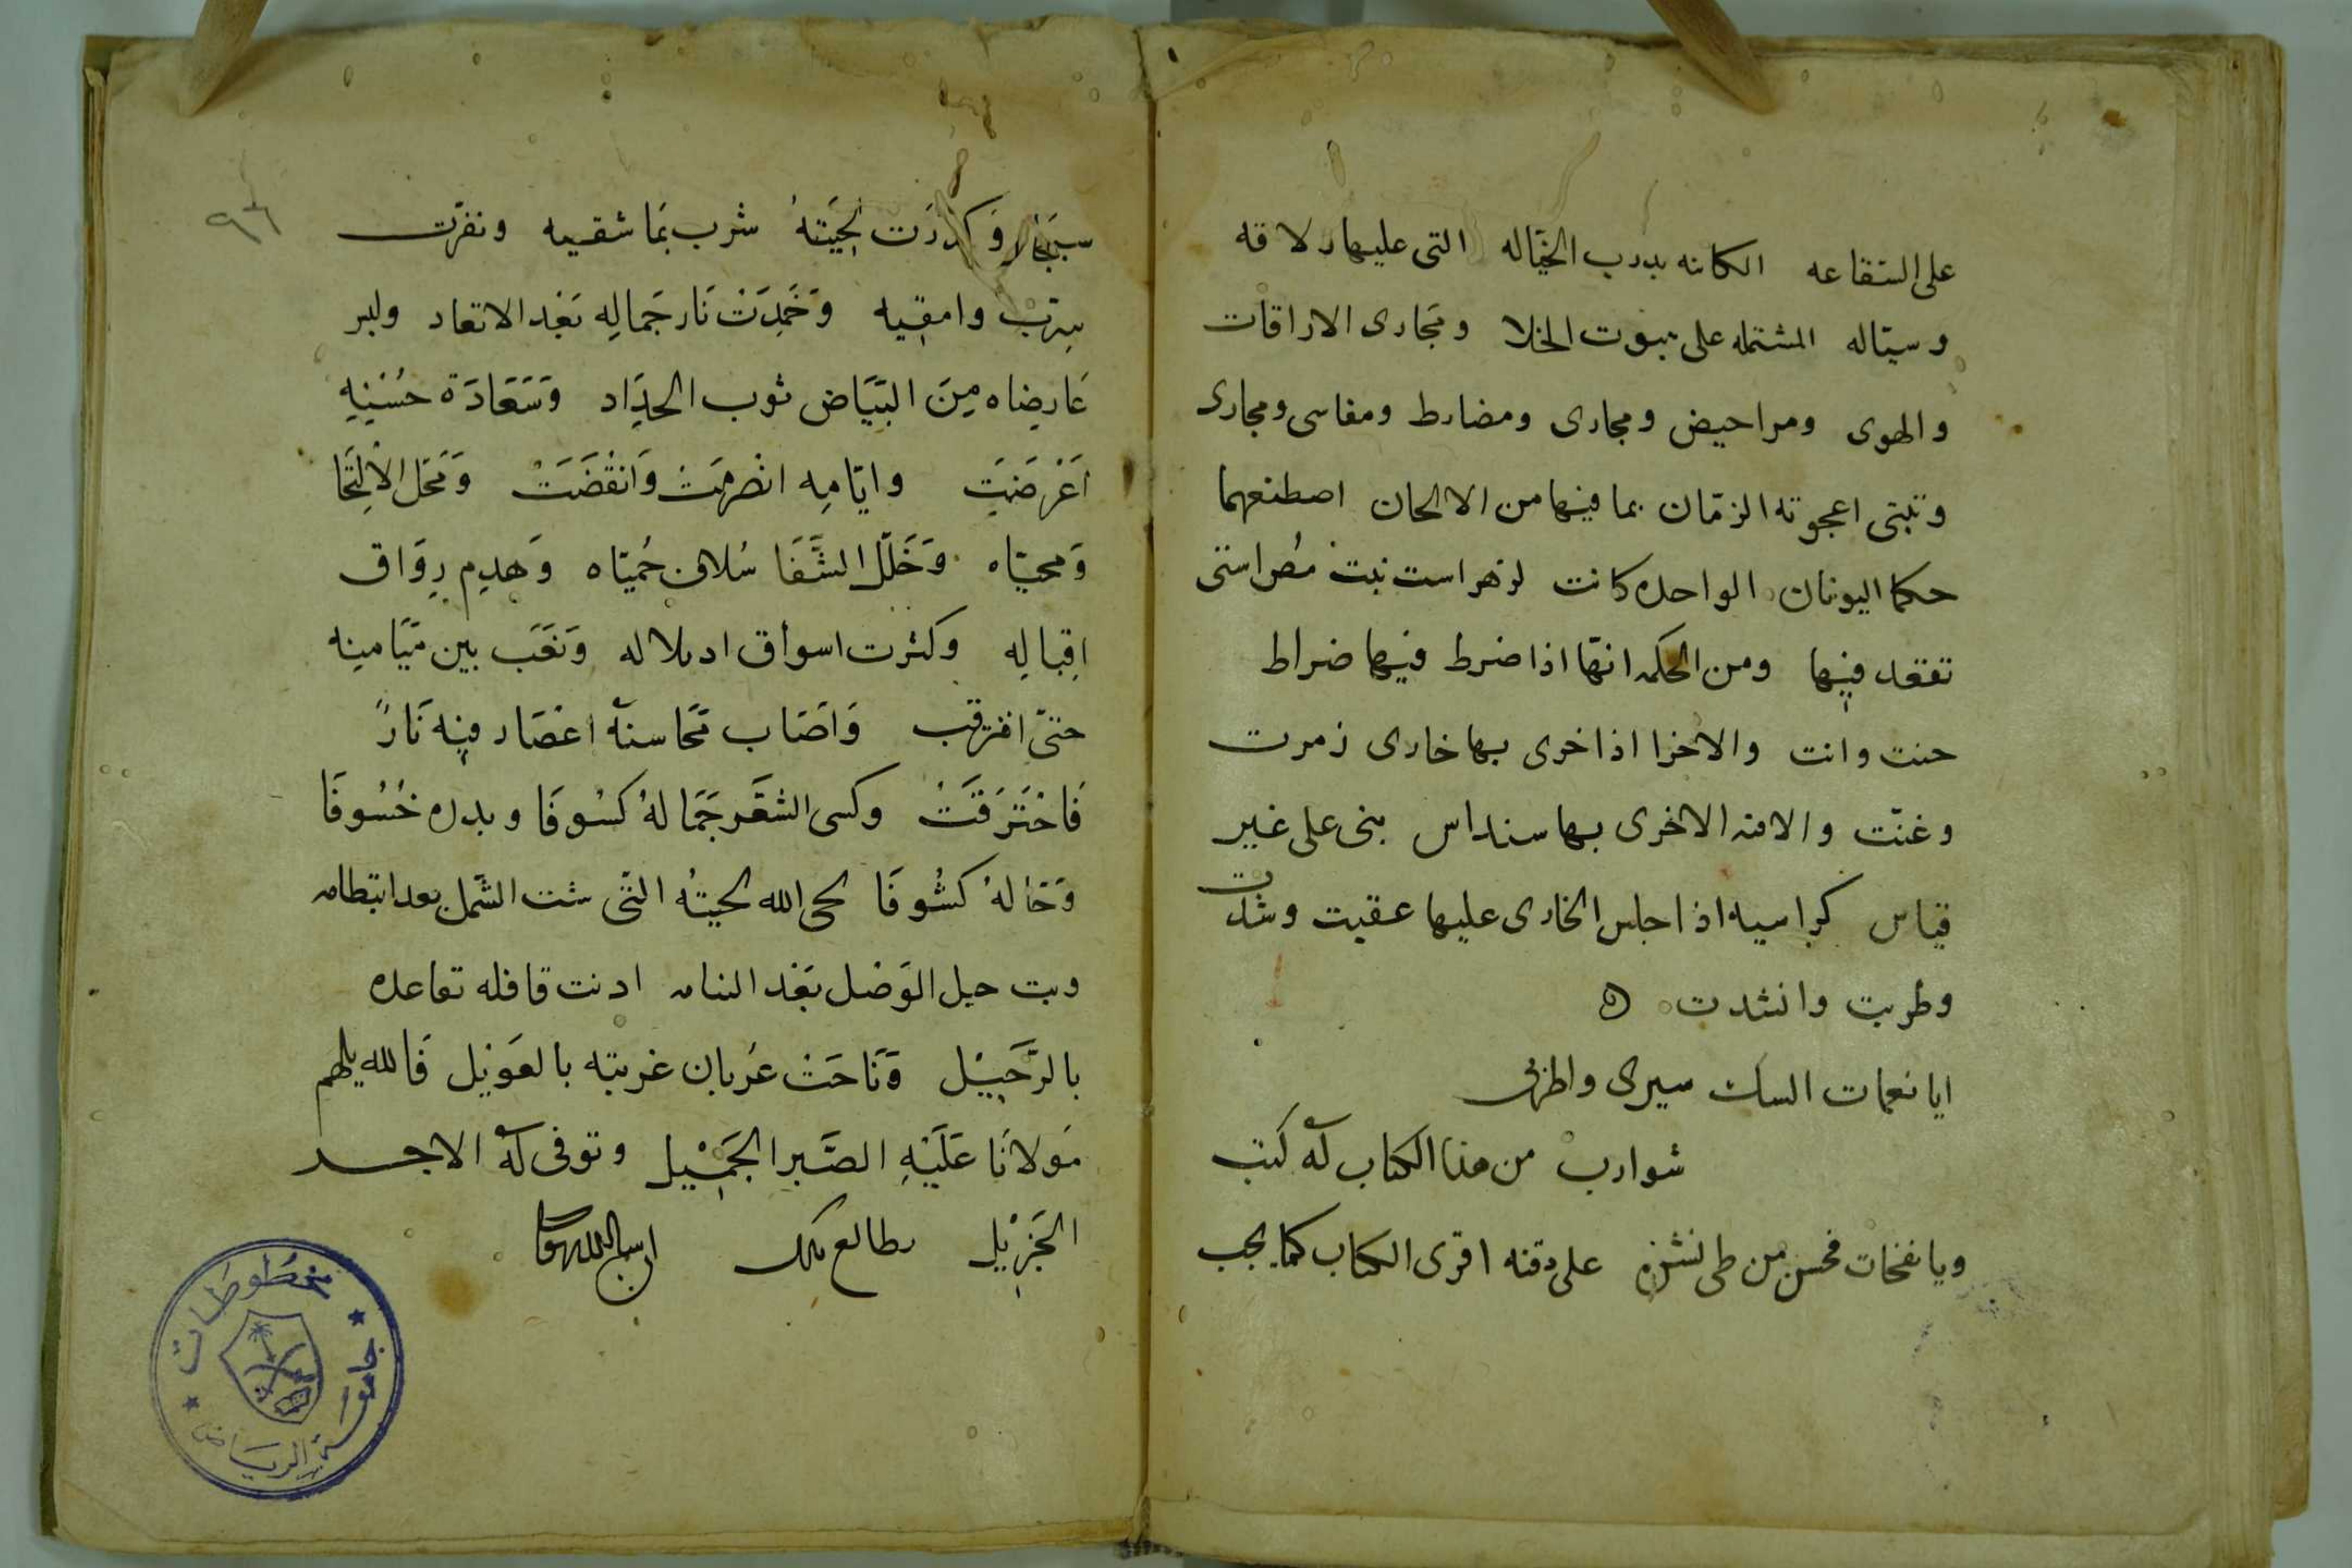 على النقاعه الكائنه بدرب الخيّاله التى عليها دلاقه
وسيّاله المشتمله على بيوت الخلا ومجارى الاراقات
والهوى ومراحيض ومجارى ومضارط ومفاسى ومجارى
وتبتى اعجوته الزمّان بما فيها من الالحان اصطنعها
حكما اليونان الواحده كانت
تقعد فيها ومن الحكمه انها اذا ضرط فيها ضراط
حنت وانت والاخرا اذا خرى بها خارى زمرت
وغنّت والاخرى بها سنداس بنى على غير
قياس كراسيه اذا جلس الخارى عليها عقبت وشدت
وطربت وانشدت
ايا نعمات سيرى واطربى
شوارب من هذا الكتاب له كتب
ويا نفحات من طى نشره على دقنه اقرى الكتاب كما يجب
٩٦
وَكدرَت لِحيَتهُ شرب عَاشقيه ونفرّت
سِرْب وامقيه وَخَمِدَتْ نَار جَمالِه بَعْد الاتقاد ولبس
عَارِضاه مِنَ البَيَاض ثوب الحِدَاد وَسَعَادَة حُسْنِه
اَعْرَضَت وايّامِه انْصَرمَتْ وَانْقَضَتْ وَمَحَل الْاِلتِحَا
وَمحيّاه وَخَلّل الشَّفَا سُلاف حُميّاه وَهدِم رِوَاق
اِقبالِه وكثرت اسواق ادلاله وَنعَب بين مَيَامنِه
وَاصَاب مَحَاسنهُ اعْصَار فيِه نَارً
فَاحْتَرَقَتْ وكسى الشعَر جَمَالهُ كسُوفَا وبدره خُسُوفَا
وَحَالهُ كشُوفَا لحى الله لحيتُه التّى شتت الشّمل بعد انتظامه
وبت حبل الوَصْل بَعْد التئامه اذنت قافله تقاعده
بالرَّحِيْل وَنَاحَتْ غربته بالعَوِيْل فَالله يلهم
مَولانَا عَلَيْهِ الصَّبر الجَمِيْل وتوفى لهُ الاجــر
الجَزِيْل
مخطوطات
جامعة الرياض